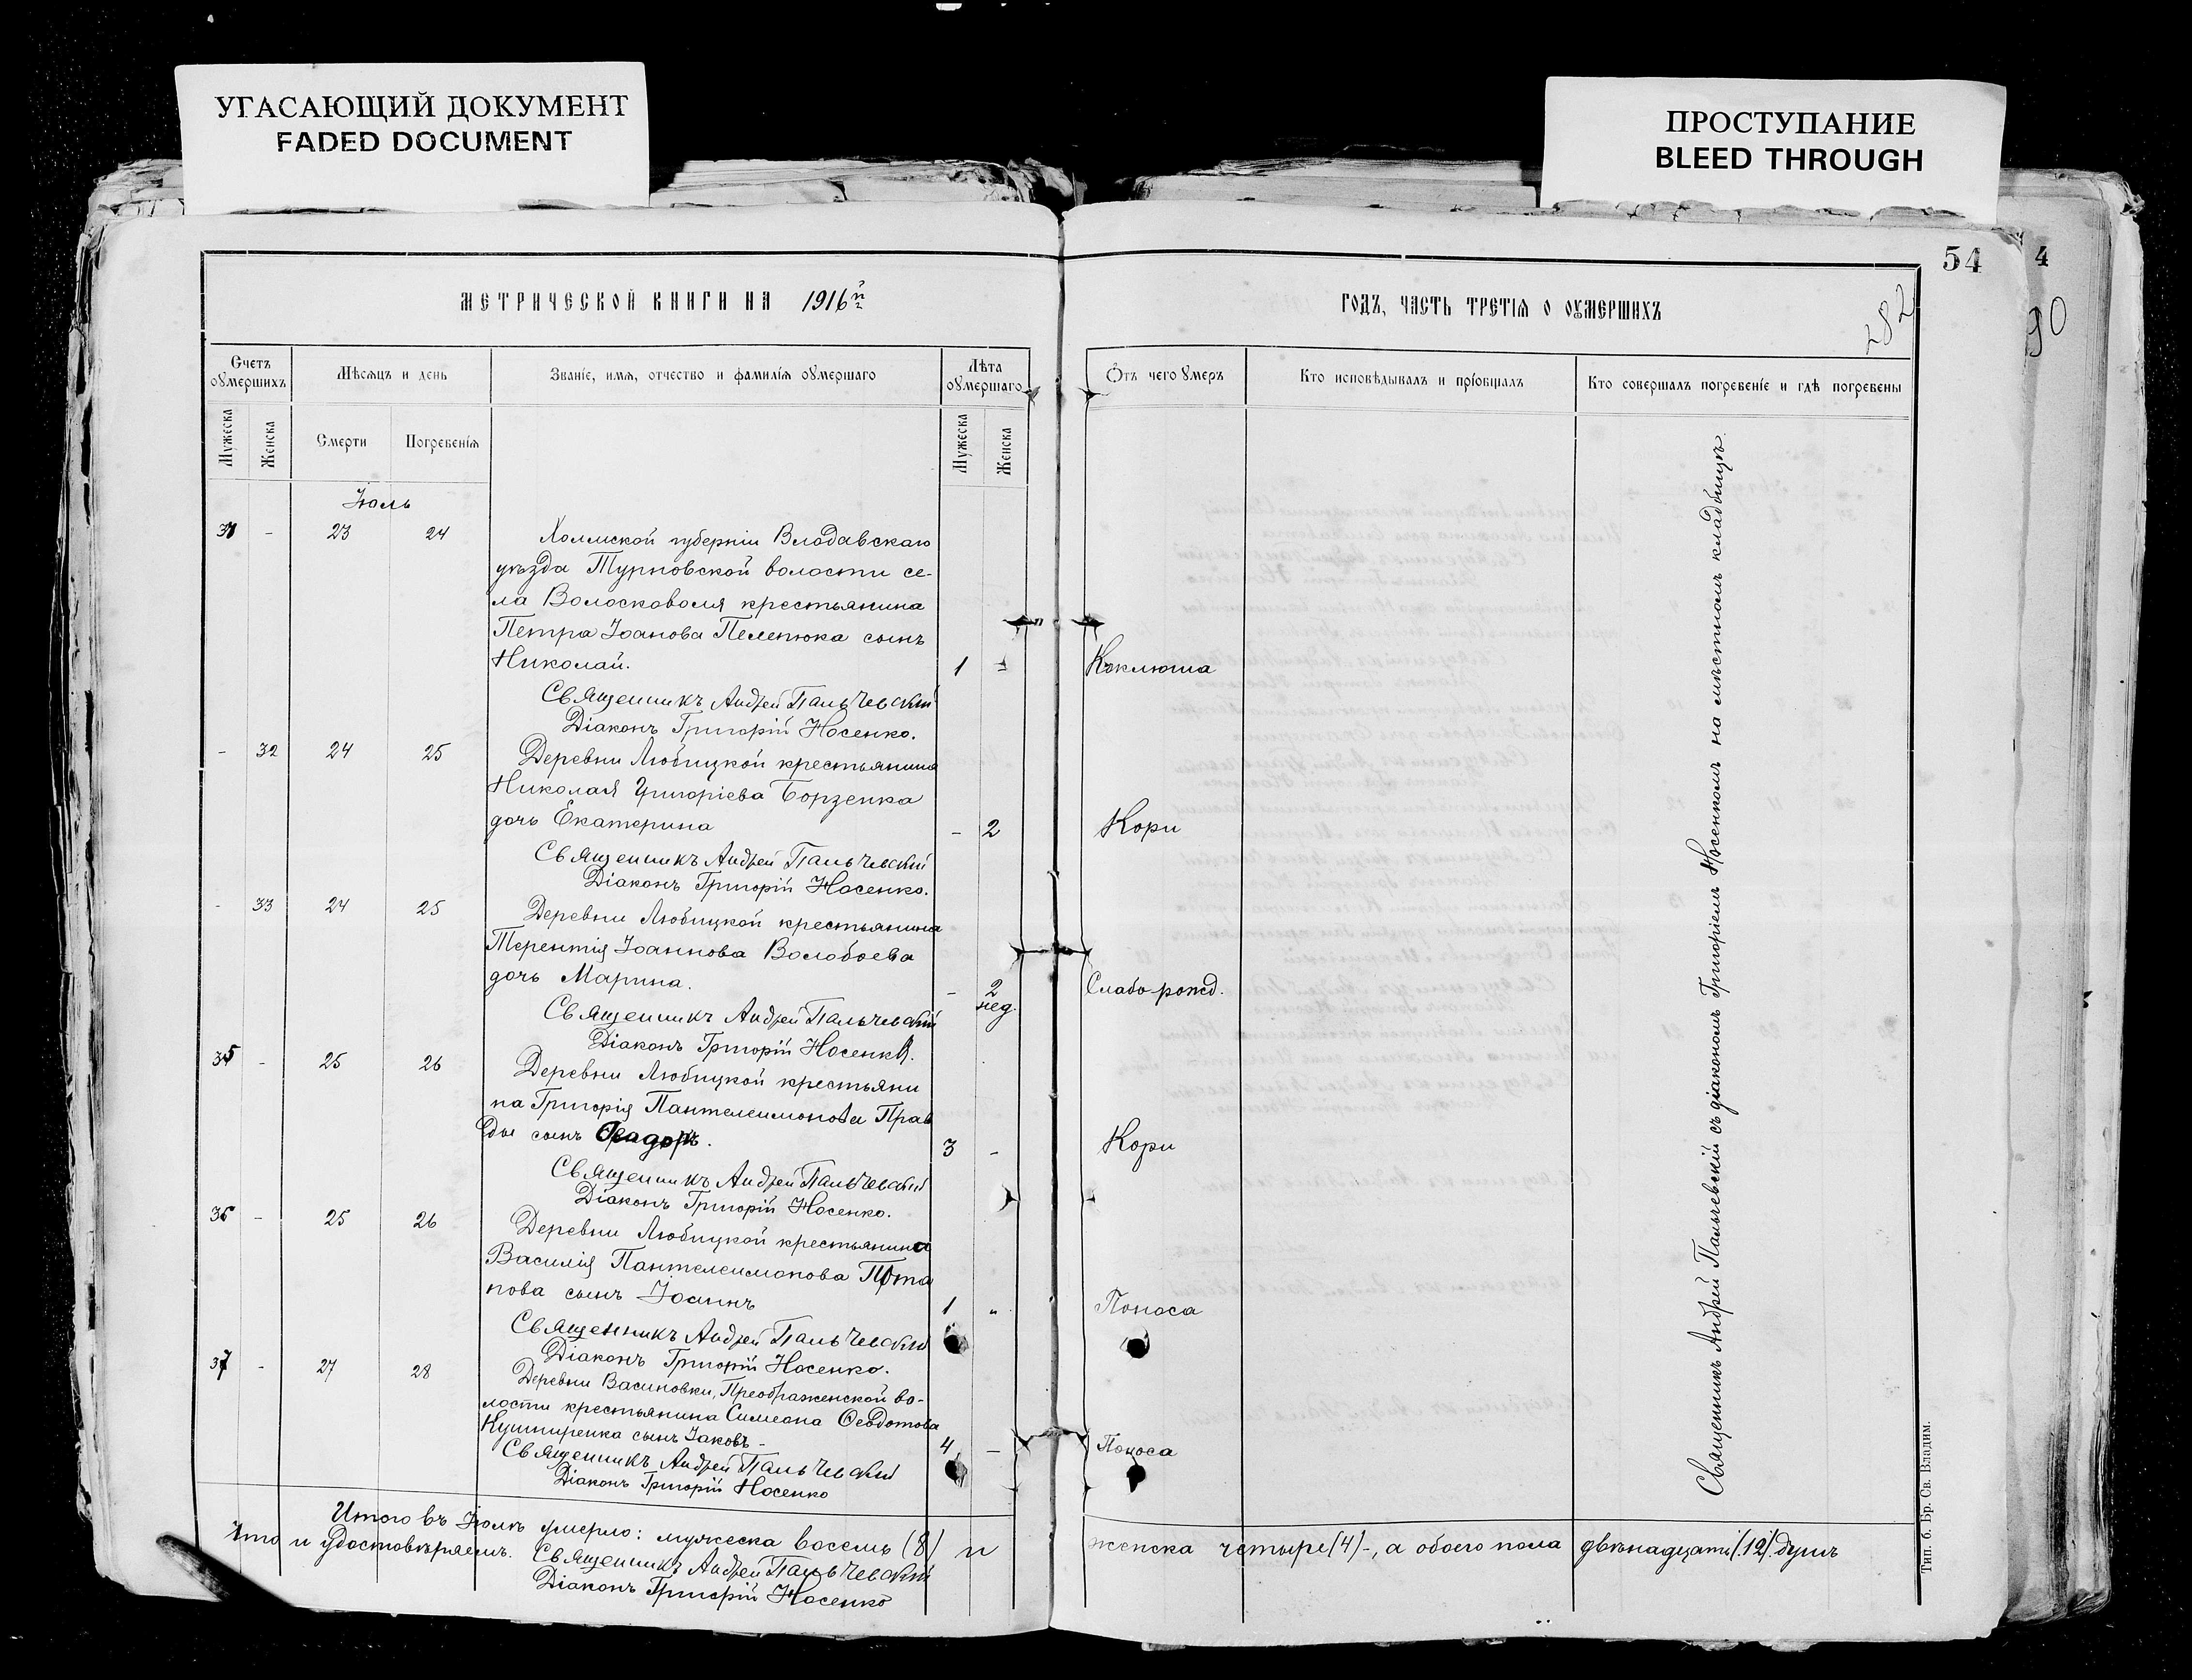 УГАСАЮЩИЙ ДОКУМЕНТ
FADED DOCUMENT
ПРОСТУПАНИЕ
BLEED THROUGH
54
4
90
282
МЕТРИЧЕСКОЙ КНИГИ НА 1916 й
ГОДЪ, ЧАСТЬ ТРЕТІЯ О ОУМЕРШИХЪ
Счетъ оумершихъ
Мѣсяцъ и день
Званіе, имя, отчество и фамилія оумершаго
Лѣта оумершаго
Отъ чего умеръ
Кто исповѣдывалъ и пріобщалъ
Кто совершалъ погребеніе и гдѣ погребены
Мужеска
Женска
Смерти
Погребенія
Мужеска
Женска
Іюль
31 - 23 24 Холмской губерніи Влодавскаго
уѣзда Турновской волости се-
ла Волосковоля крестьянина
Петра Іоанова Пелепюка сынъ
Николай. 1 " Коклюша
Священникъ Андрей Пальчевскій
Діаконъ Григорій Носенко.
- 32 24 25 Деревни Любицкой крестьянина
Николая Григоріева Борзенка
дочь Екатерина - 2 Кори
Священникъ Андрей Пальчевскій
Діаконъ Григорій Носенко.
- 33 24 25 Деревни Любицкой крестьянина
Терентія Іоаннова Волобоева
дочь Марина. - 2 нед. Слабо-рожд.
Священникъ Андрей Пальчевскій
Діаконъ Григорій Носенко.
35 - 25 26 Деревни Любицкой крестьяни
на Григорія Пантелеимонова Прав
ды сынъ 3 - Кори
Священникъ Андрей Пальчевскій
Діаконъ Григорій Носенко.
36 - 25 26 Деревни Любицкой крестьянина
Василія Пантелеимонова Пота
пова сынъ Іоаннъ 1 " Поноса
Священникъ Андрей Пальчевскій
Діаконъ Григорій Носенко.
37 - 27 28 Деревни Васиновки, Преображенской во-
лости крестьянина Симеона Ѳеодотова
Кушниренка сынъ Іаковъ - 4 - Поноса
Священникъ Андрей Пальчевскій
Діаконъ Григорій Носенко
Священникъ Андрей Пальчевскій съ діакономъ Григоріемъ Носенкомъ на мѣстномъ кладбищѣ.
Итого въ Іюлѣ умерло: мужеска восемь (8) и женска четыре (4) -, а обоего пола двѣнадцать (12) душъ
Что и удостовѣряемъ. Священникъ Андрей Пальчевскій
Діаконъ Григорій Носенко
Тип. б. Бр. Св. Владим.